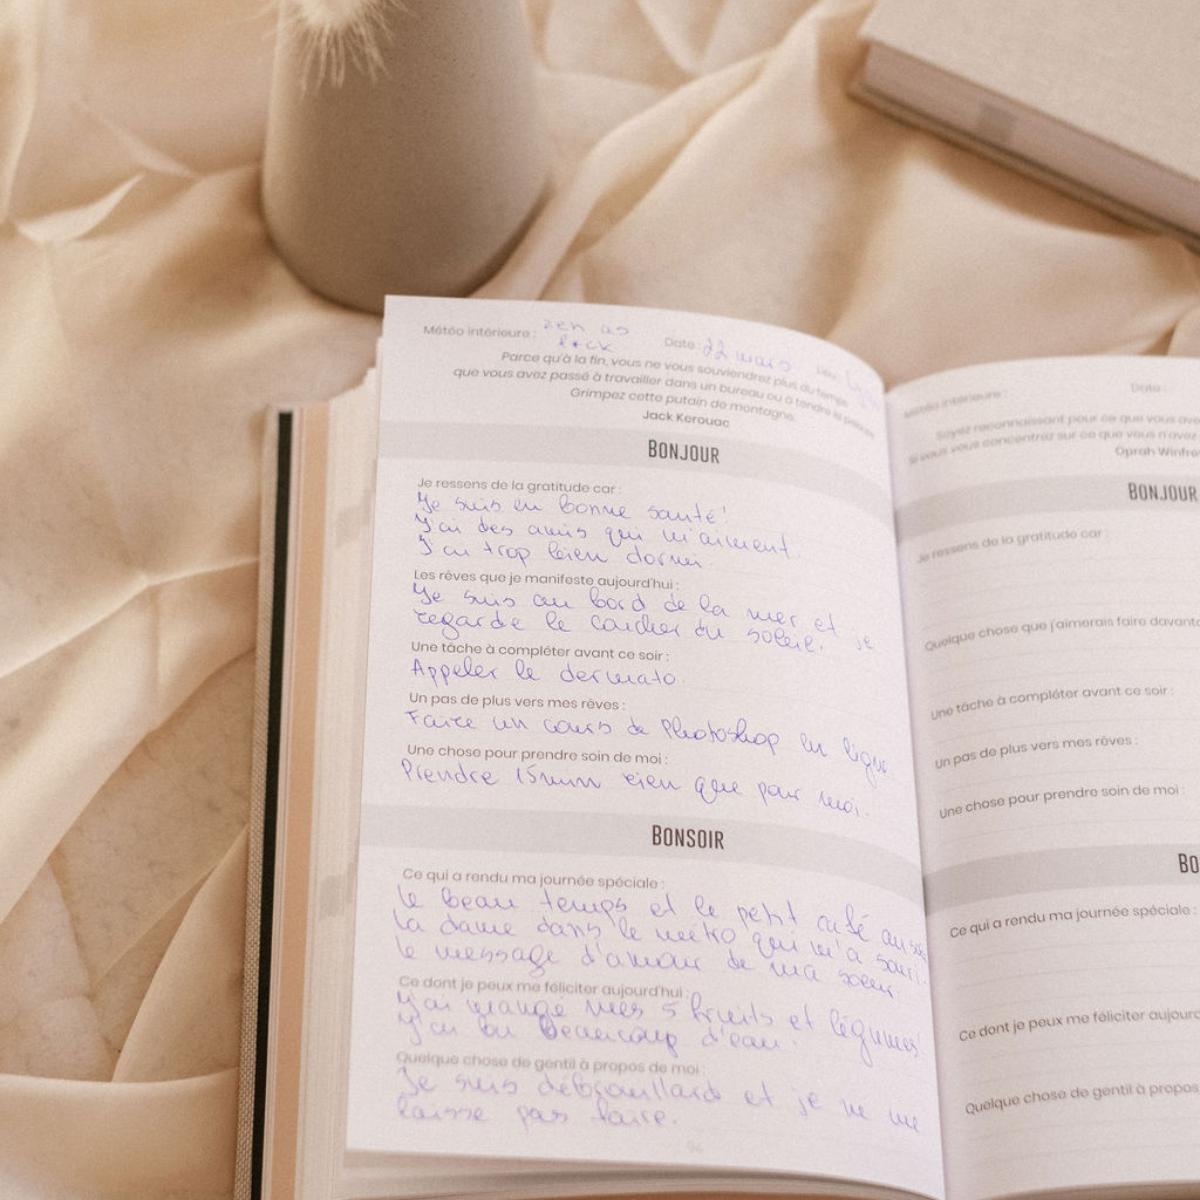 Météo intérieure : zen as
f*ck
Date : 22 mars
Parce qu'à la fin, vous ne vous souviendrez plus du temps
que vous avez passé à travailler dans un bureau ou à tondre la pelouse.
Grimpez cette putain de montagne.
Jack Kerouac
BONJOUR
Je ressens de la gratitude car :
Je suis en bonne santé !
J'ai des amis qui m'aiment.
J'ai trop bien dormi.
Les rêves que je manifeste aujourd'hui :
Je suis au bord de la mer et je
regarde le coucher du soleil.
Une tâche à compléter avant ce soir :
Appeler le dermato.
Un pas de plus vers mes rêves :
Faire un cours de Photoshop en ligne
Une chose pour prendre soin de moi :
Prendre 15min rien que pour moi.
BONSOIR
Ce qui a rendu ma journée spéciale :
le beau temps et le petit café
La dame dans le métro qui m'a souri.
le message d'amour de ma soeur.
Ce dont je peux me féliciter aujourd'hui :
J'ai mangé mes 5 fruits et légumes!
J'ai bu beaucoup d'eau.
Quelque chose de gentil à propos de moi :
Je suis débrouillard et je ne me
laisse pas faire.
Météo intérieure :
Date :
Soyez reconnaissant pour ce que vous ave
si vous vous concentrez sur ce que vous n'avez
Oprah Winfre
BONJOUR
Je ressens de la gratitude car :
Quelque chose que j'aimerais faire davanta
Une tâche à compléter avant ce soir :
Un pas de plus vers mes rêves :
Une chose pour prendre soin de moi :
BO
Ce qui a rendu ma journée spéciale :
Ce dont je peux me féliciter aujourd
Quelque chose de gentil à propos